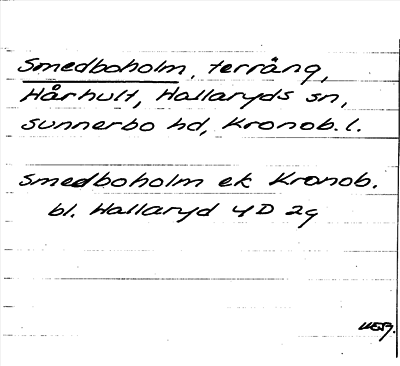 Smedboholm, terräng,
Hårhult, Hallaryds sn,
Sunnerbo hd, Kronob. l.
Smedboholm ek Kronob.
bl. Hallaryd 4D 2g